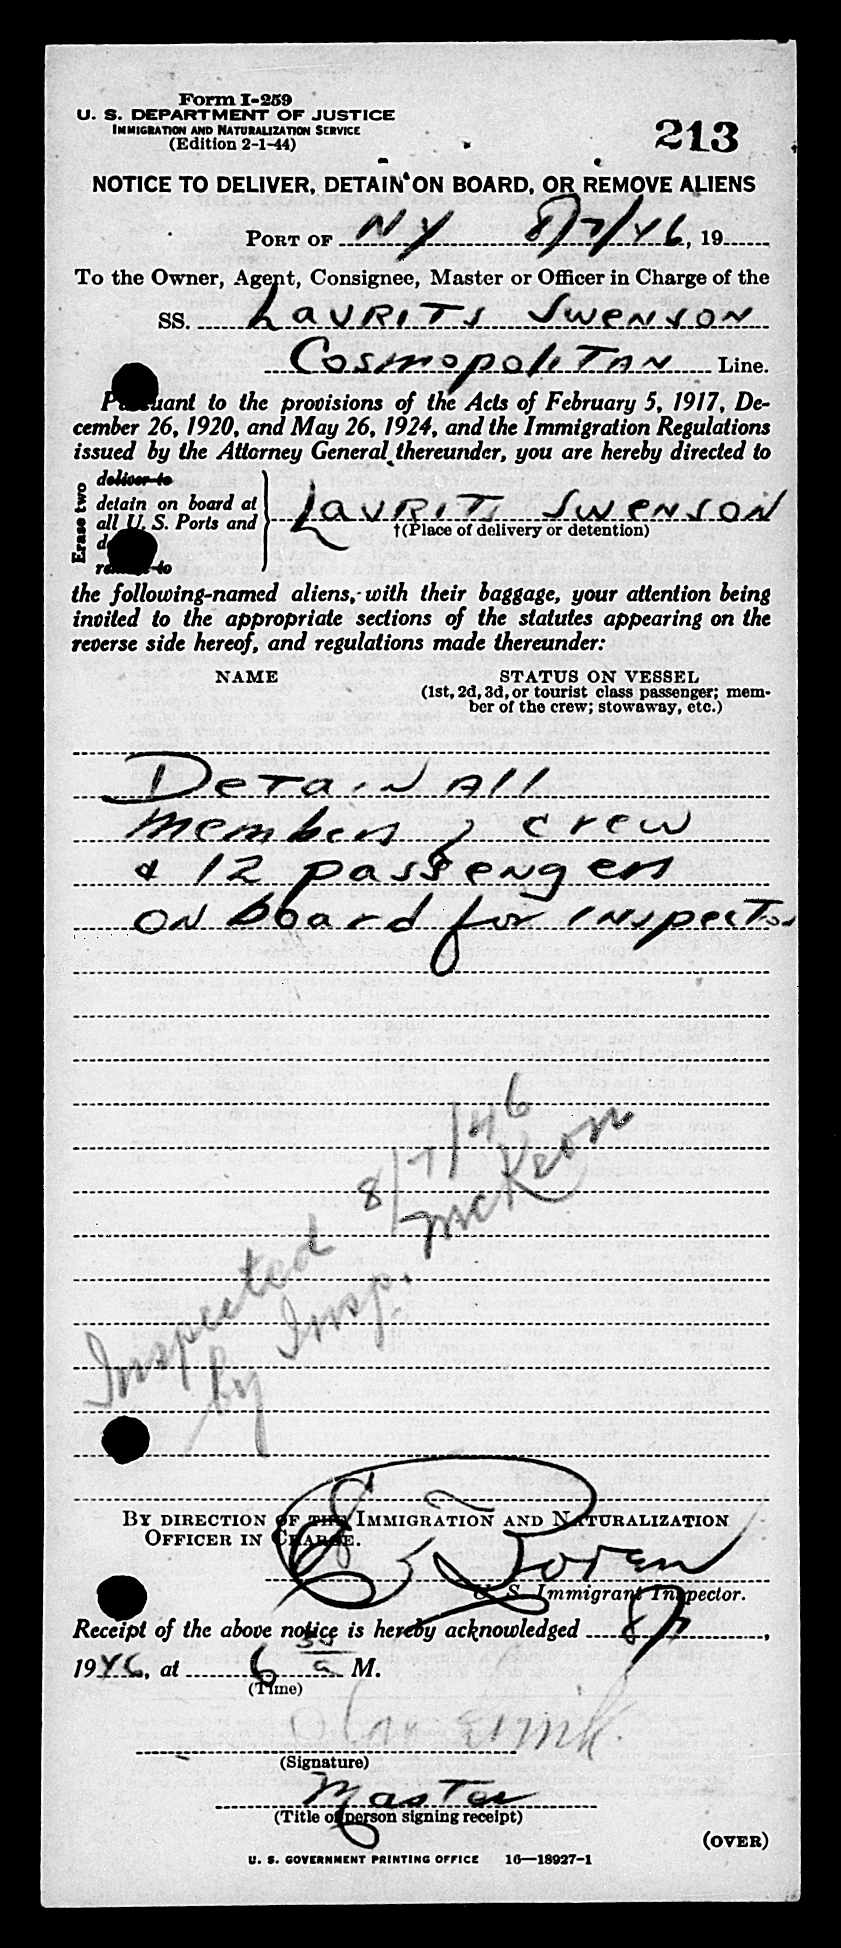 Form I-259
U. S. DEPARTMENT OF JUSTICE
IMMIGRATION AND NATURALIZATION SERVICE
(Edition 2-1-44)
213
NOTICE TO DELIVER, DETAIN ON BOARD, OR REMOVE ALIENS
PORT OF NY 8/7/46, 19
To the Owner, Agent, Consignee, Master or Officer in Charge of the
SS. Laurits Swenson
Cosmopolitan Line.
Pursuant to the provisions of the Acts of February 5, 1917, De-
cember 26, 1920, and May 26, 1924, and the Immigration Regulations
issued by the Attorney General thereunder, you are hereby directed to
Erase two
deliver to
detain on board at
all U. S. Ports and
remove to
Laurits Swenson
†(Place of delivery or detention)
the following-named aliens, with their baggage, your attention being
invited to the appropriate sections of the statutes appearing on the
reverse side hereof, and regulations made thereunder:
NAME STATUS ON VESSEL
(1st, 2d, 3d, or tourist class passenger; mem-
ber of the crew; stowaway, etc.)
Detain All
members of crew
& 12 passengers
on board for Inspection
Inspected 8/7/46
by Insp. McKeon
BY DIRECTION OF THE IMMIGRATION AND NATURALIZATION
OFFICER IN CHARGE.
U. S. Immigrant Inspector.
Receipt of the above notice is hereby acknowledged 8/7,
1946, at 6 30 a M.
(Time)
(Signature)
Master
(Title of person signing receipt)
(OVER)
U. S. GOVERNMENT PRINTING OFFICE 16—18927-1